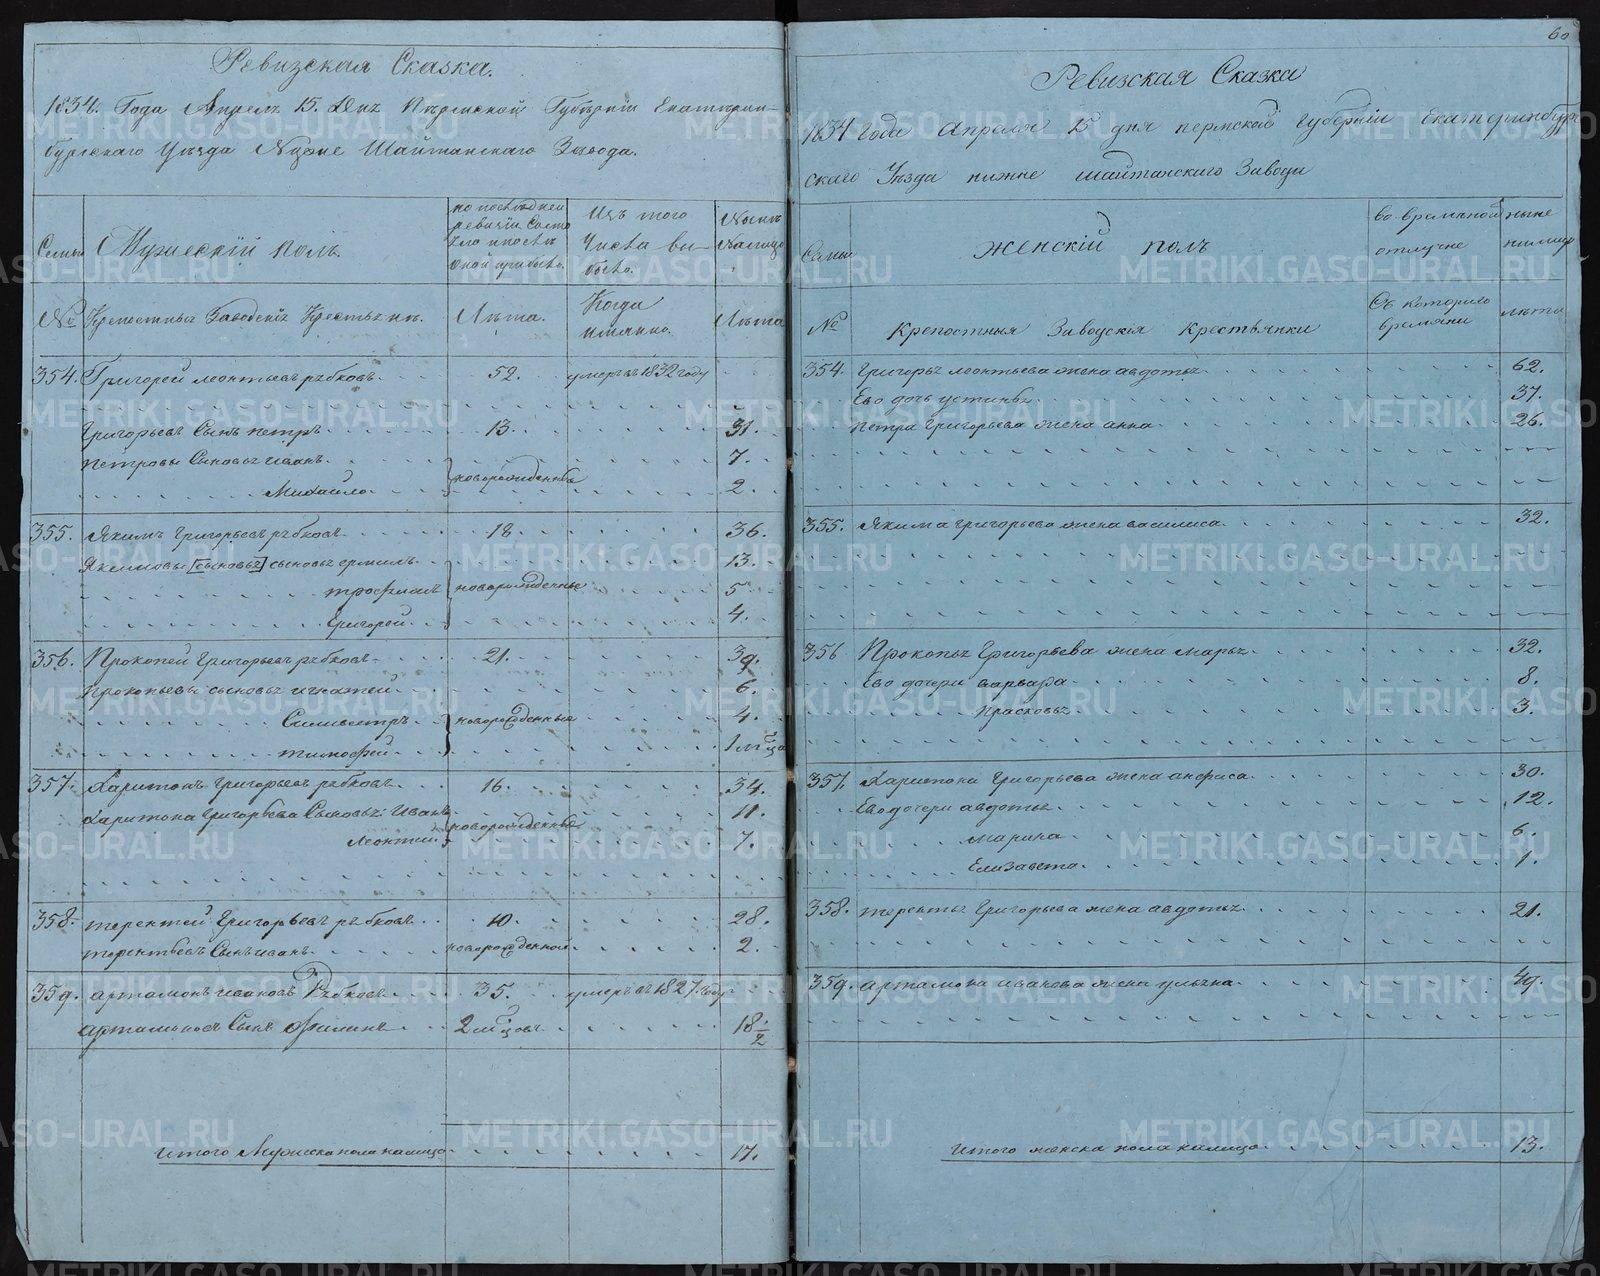 Ревизская Сказка.
1834. Года Апрель 15. Дня Пермской Губернiи Екатерин-
бургскаго Уезда Нижне Шайтанскаго Завода.
Семьи Мужескiй полъ. по последней ревизiи состо яло и после оной прибыло. Изъ того Числа вы- было. Ныне Налицо
№ Крепостныя Заводскiя Крестьяне. Лета. Когда имянно. Лета
354. Григорей леонтьевъ рябковъ 52. умеръ въ 1832 году
Григорьевъ Сынъ петръ 13. 31.
петровы Сыновья иванъ 7.
Михайло новорожденныя 2.
355. Якимъ григорьевъ рябковъ 18. 36.
Якимовы [сыновья] сыновья ермилъ 13.
трофимъ новорожденныя 5
григорей 4.
356. Прокопей Григорьевъ рябковъ 21. 39.
прокопьевы сыновья игнатей 6.
Сильвестръ новорожденныя 4.
тимофей 1 мца
357. Харитонъ григорьевъ рябковъ 16. 34.
Харитона григорьева Сыновья: Иванъ 11.
леонтей новорожденныя 7.
358. терентей Григорьевъ рябковъ 10. 28.
терентьевъ Сынъ иванъ новорожденной 2.
359. артамонъ ивановъ Рябковъ 35. умеръ въ 1827 году
артамоновъ Сынъ Филипъ 2 мцовъ 18 1/2
итого Мужеска пола налицо 17.
60
Ревизская Сказка
1834 года апреля 15 дня пермской губернiи Екатеринбург
скаго Уезда нижне шайтанскаго Завода
Семьи женскiй полъ во временной отлучке ныне налицо
№ Крепостныя Заводскiя Крестьянки Съ котораго времяни лета
354. Григорья леонтьева жена авдотья 62.
Его дочь устинья 37.
петра Григорьева жена анна 26.
355. Якима григорьева жена василиса 32.
356 Прокопья Григорьева жена марья 32.
Его дочери варвара 8.
Прасковья 3.
357. Харитона Григорьева жена анфиса 30.
Его дочери авдотья 12.
марина 6.
Елизавета 1.
358. терентья Григорьева жена авдотья 21.
359. артамона иванова жена ульяна 49.
итого женска пола налицо 13.
METRIKI.GASO-URAL.RU